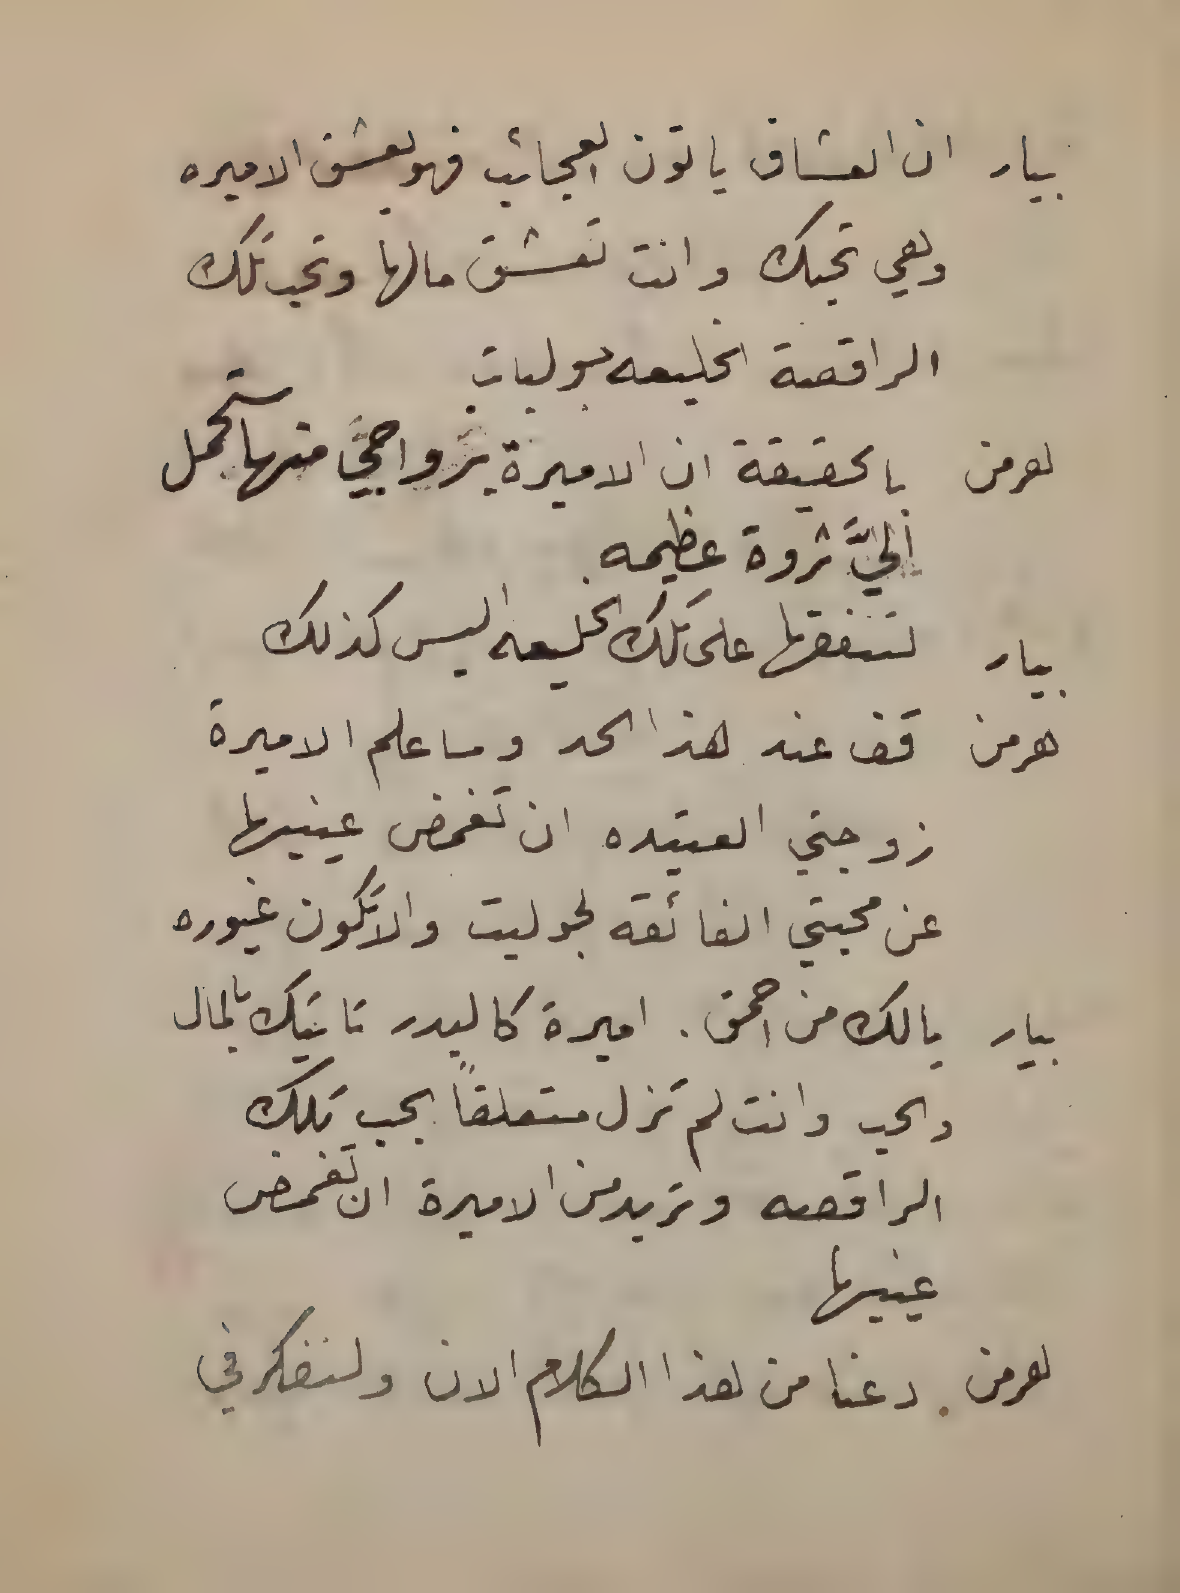 بيار ان العشاق ياتون العجائب فهو يعشق الاميره
وهي تحبك وانت تعشق مالها وتحب تلك
الراقصة الخليعه جوليات
هرمن بالحقيقة ان الاميرة بزواجيَّ منها ستحمل
اليَّ ثروة عظيمه.
بيار لتنفقها على تلك الخليعه اليس كذلك
هرمن قف عند هذا الحد وساعلم الاميرة
زوجتي العتيده ان تغمض عينيها
عن محبتي الفائقة لجوليت والا تكون غيوره
بيار يالك من احمق. اميرة كالبدر تاتيك بالمال
والحب وانت لم تزل متعلقاً بحب تلك
الراقصه وتريد من الاميرة ان تغمض
عينيها
هرمن. دعنا من هذا الكلام الان ولنفكر في